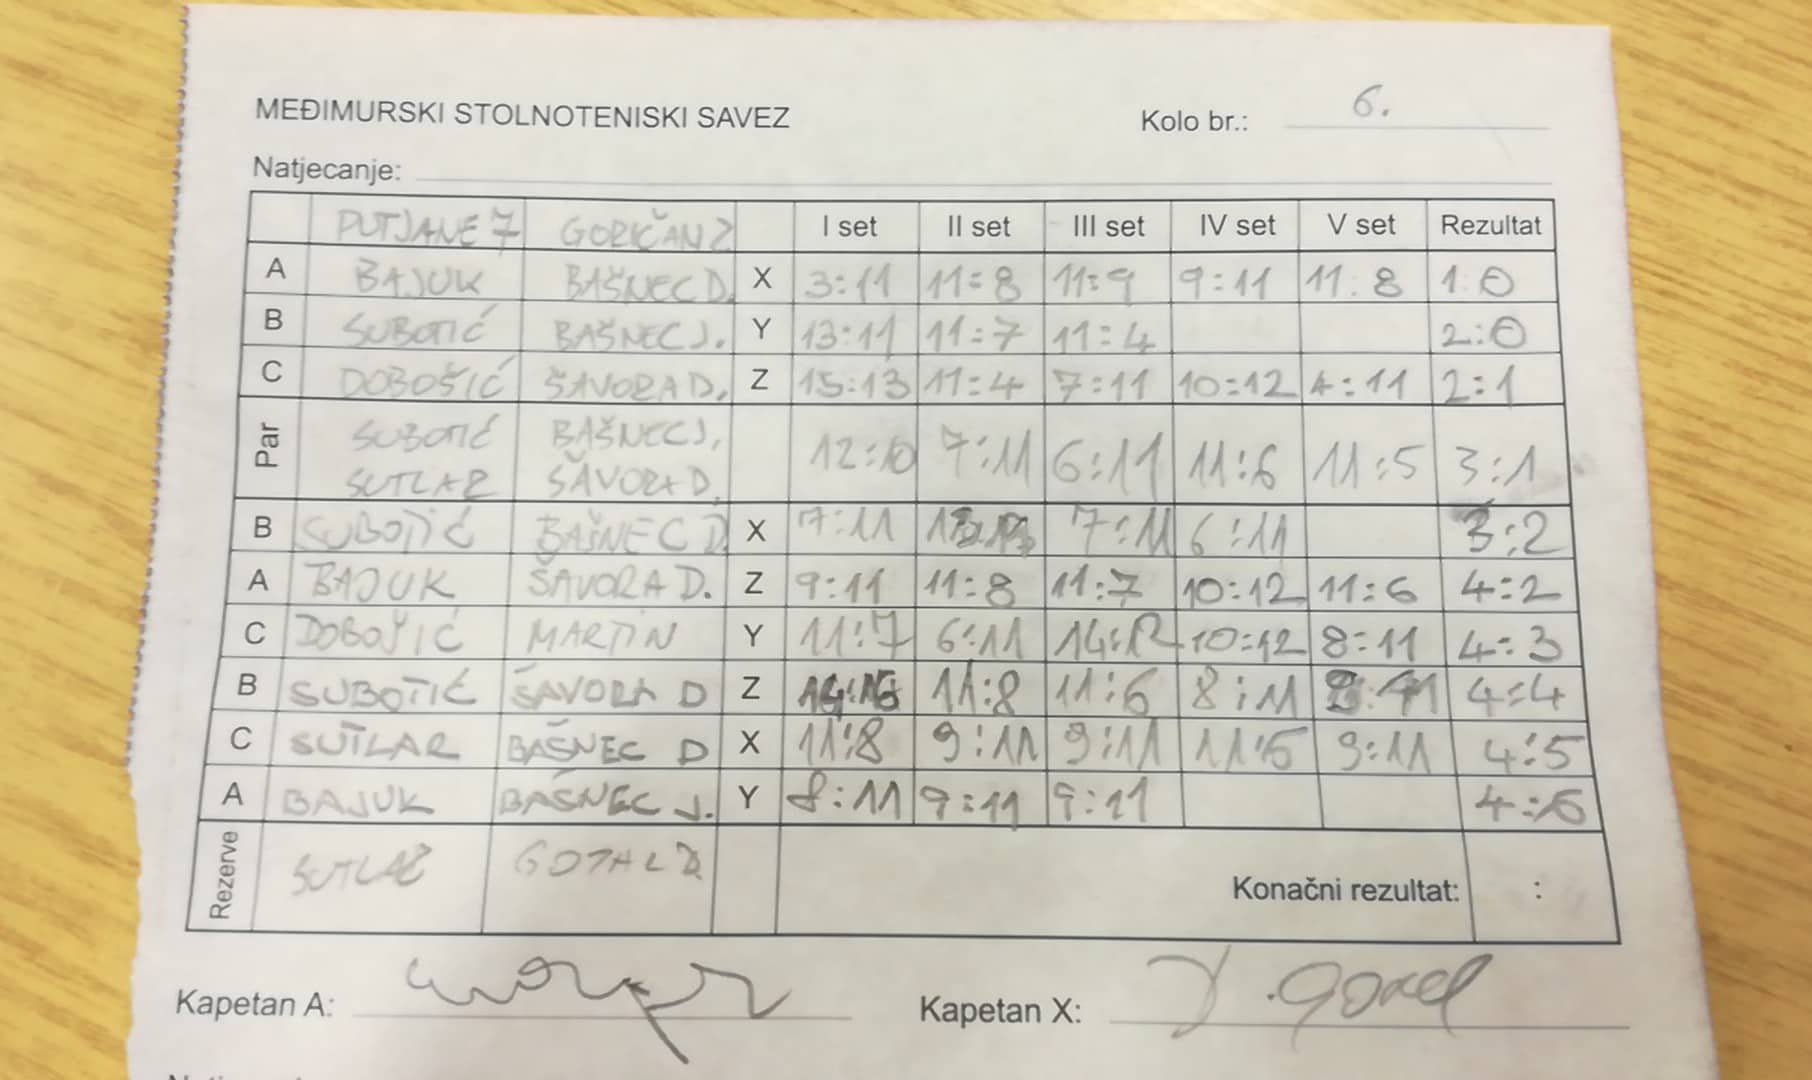 MEĐIMURSKI STOLNOTENISKI SAVEZ Kolo br.: 6.
Natjecanje:
PUTJANE 7 GORIČAN 2 I set II set III set IV set V set Rezultat
A BAJUK BAŠNEC D. X 3:11 11:8 11:9 9:11 11:8 1:0
B SUBOTIĆ BAŠNEC J. Y 13:11 11:7 11:4 2:0
C DOBOŠIĆ ŠAVORA D. Z 15:13 11:4 7:11 10:12 4:11 2:1
Par SUBOTIĆ BAŠNEC J. 12:10 7:11 6:11 11:6 11:5 3:1
SUTLAR ŠAVORA D.
B SUBOTIĆ BAŠNEC D X 7:11 7:11 6:11 3:2
A BAJUK ŠAVORA D. Z 9:11 11:8 11:7 10:12 11:6 4:2
C DOBOŠIĆ MARTIN Y 11:7 6:11 14:12 10:12 8:11 4:3
B SUBOTIĆ ŠAVORA D Z 11:8 11:6 8:11 4:4
C SUTLAR BAŠNEC D X 11:8 9:11 9:11 11:5 9:11 4:5
A BAJUK BAŠNEC J. Y 8:11 9:11 9:11 4:6
Rezerve SUTLAR GOTAL D.
Konačni rezultat: :
Kapetan A: Kapetan X: